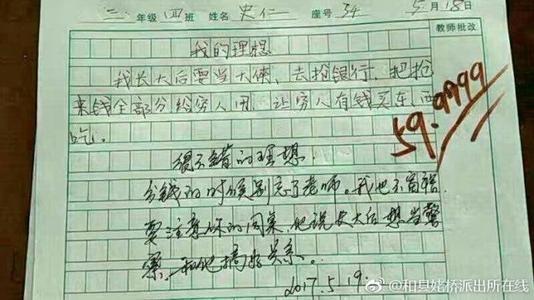 二 年级 四 班 姓名 史仁 座号 34 5 月 18 日
教师批改
我的理想
我长大后要当大侠,去抢银行,把抢
来钱全部分给穷人用,让穷人有钱买东西
吃。
59.9999
很不错的理想!
分钱的时候别忘了老师。我也不富裕,
要注意你的同桌,他说长大后想当警
察。和他搞好关系。
2017.5.19.
@和县姥桥派出所在线